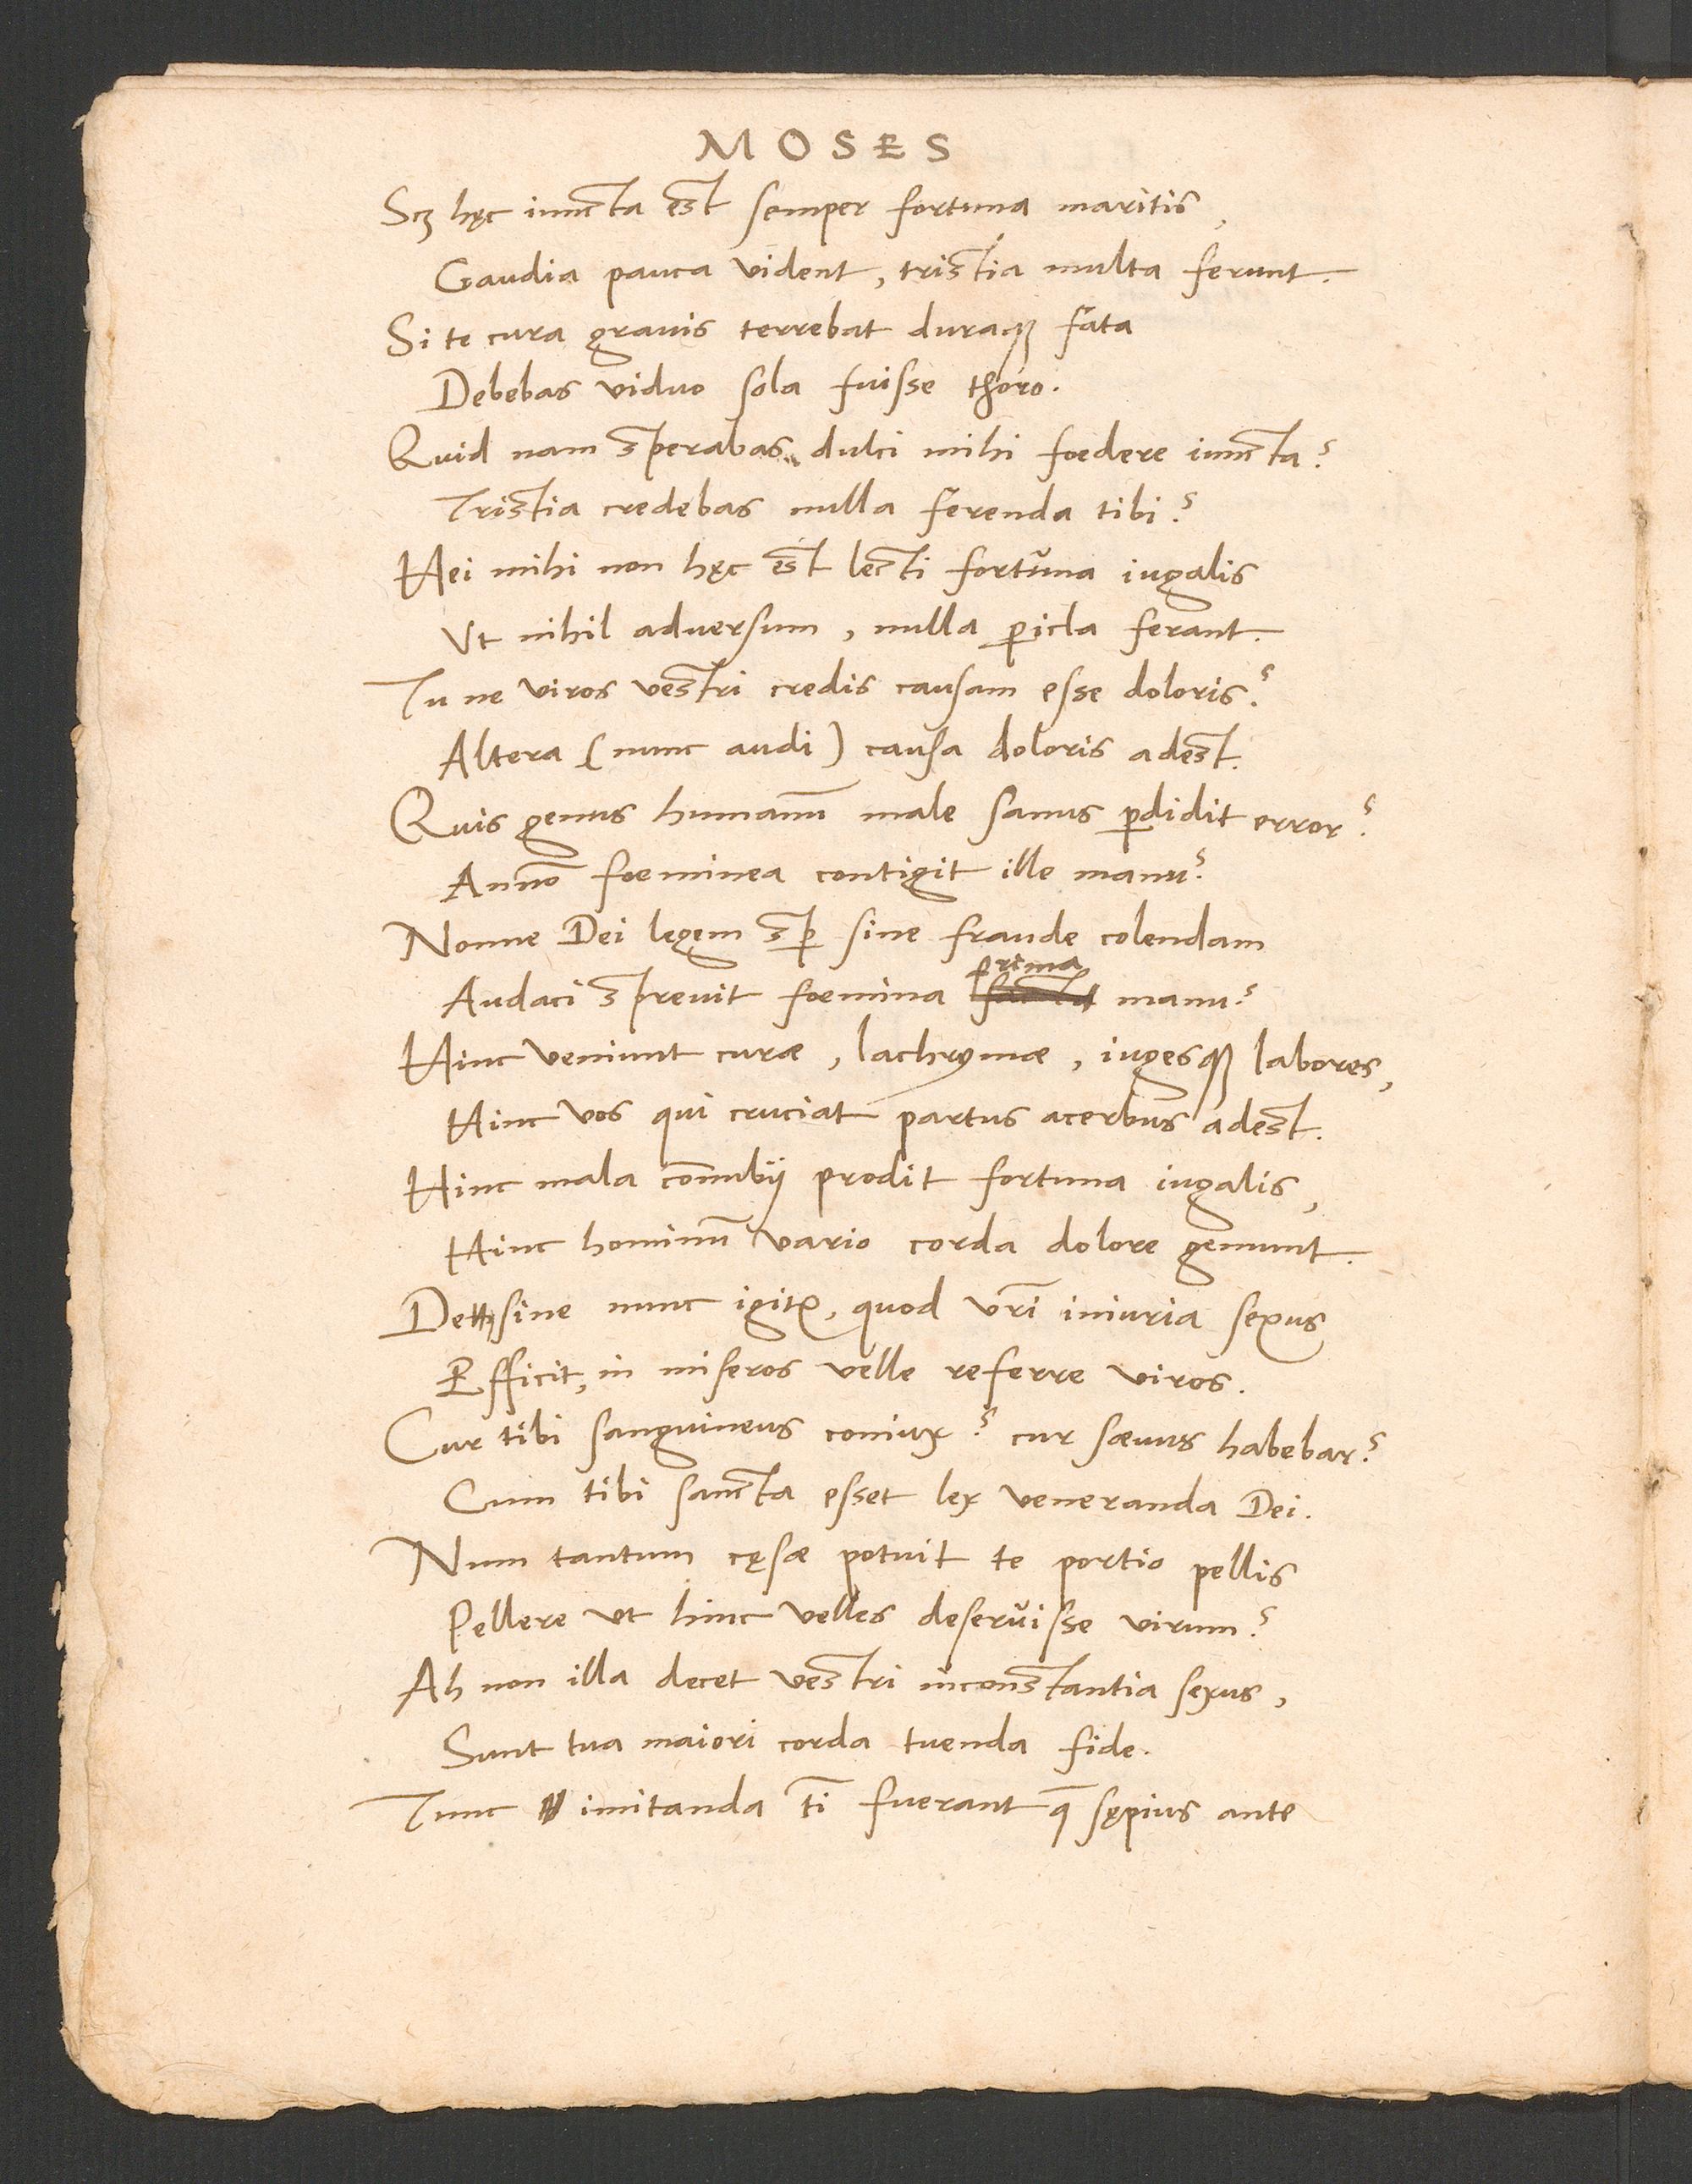 MOSES
Scꝫ hęc iuncta est semper fortuna maritis,
Gaudia pauca vident, tristia multa ferunt.
Si te cura gravis terrebat duraqꝫ fata
Debebas viduo sola fuisse thoro.
Quid nam sperabas dulci mihi foedere iuncta?
Tristia credebas nulla ferenda tibi?
Hei mihi non hęc est lecti fortuna iugalis
Vt nihil adversum, nulla ꝑicla ferant.
Tu ne viros vestri credis causam esse doloris?
Altera (nunc audi) causa doloris adest.
Quis genus humanū male sanus ꝑdidit error?
Annō foeminea contigit ille manu?
Nonne Dei legem sꝑ sine fraude colendam
Audaci sprevit foemina prima manu?
Hinc veniunt curæ, lachrymæ, iugesqꝫ labores,
Hinc vos qui cruciat partus acerbus adest.
Hinc mala cōnubij prodit fortuna iugalis,
Hinc hominū vario corda dolore gemunt.
Desine nunc igitꝛ, quod vr̄i iniuria sexus
Efficit, in miseros velle referre viros.
Cur tibi sanguineus coniux? cur sævus habebar?
Cum tibi sancta esset lex veneranda Dei.
Num tantum cęsæ potuit te portio pellis
Pellere vt hinc velles deseruisse virum?
Ah non illa decet vestri inconstantia sexus,
Sunt tua maiori corda tuenda fide.
Tunc imitanda tī fuerant q̄ sępius ante